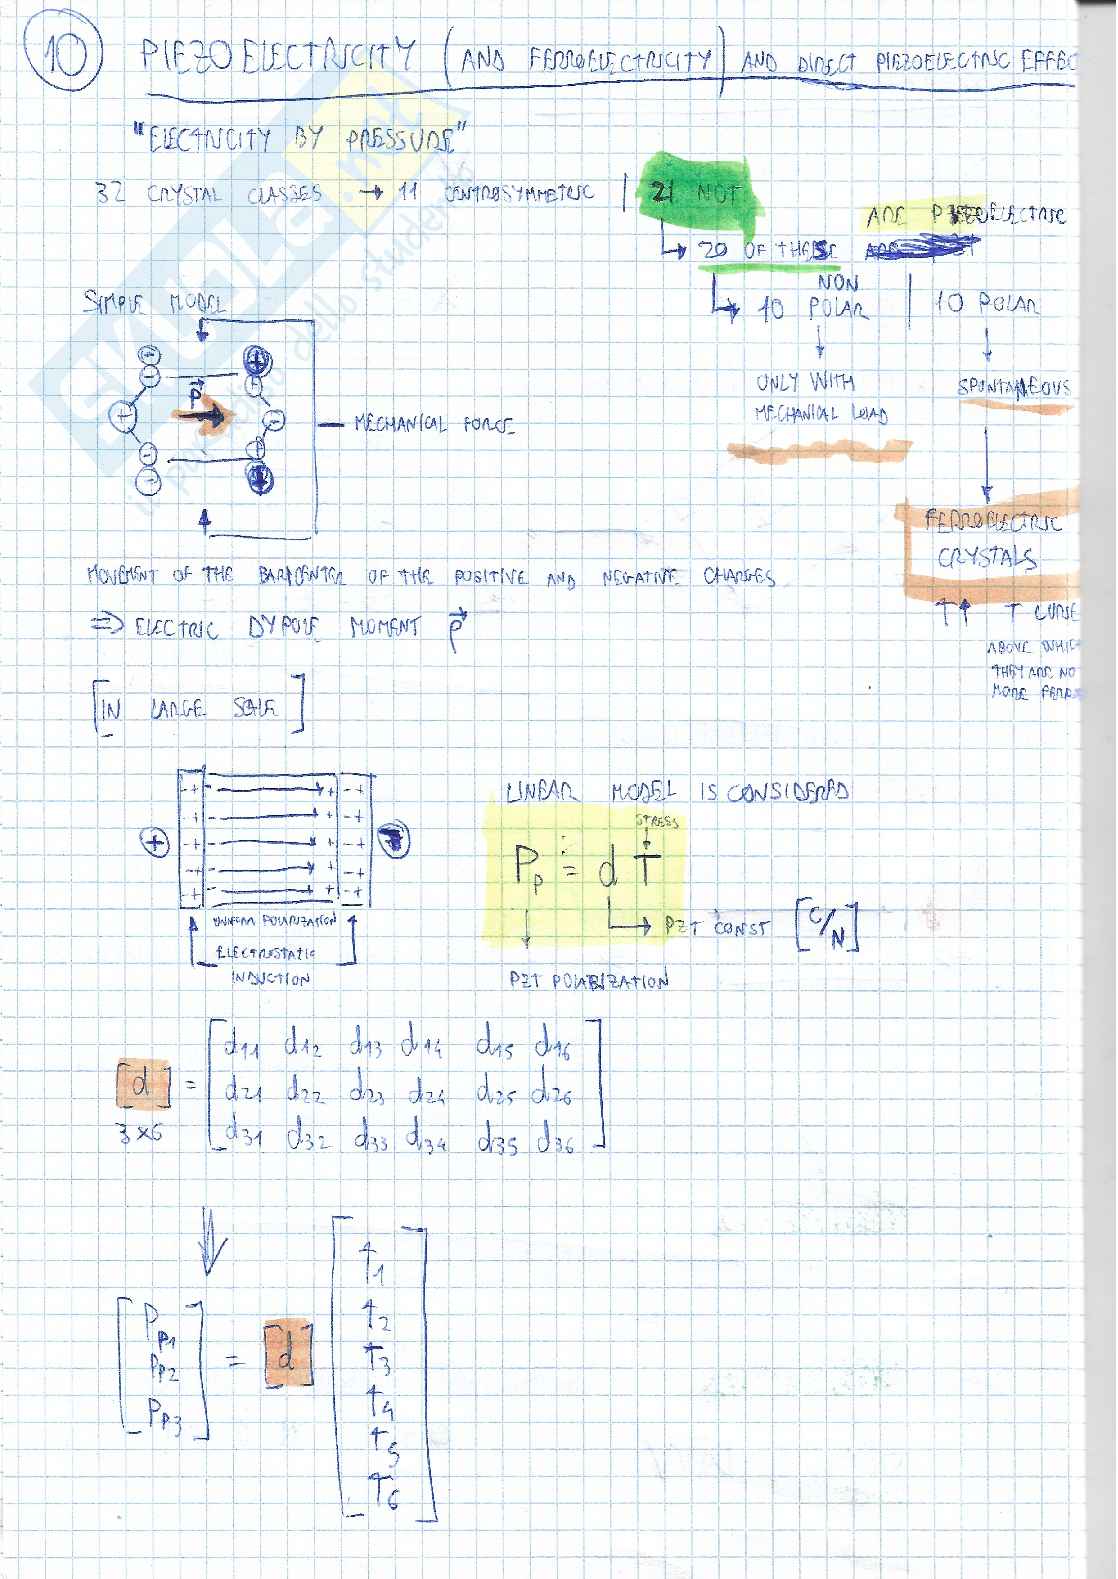 10 PIEZOELECTRICITY (AND FERROELECTRICITY) AND DIRECT PIEZOELECTRIC EFFEC
"ELECTRICITY BY PRESSURE"
32 CRYSTAL CLASSES → 11 CENTROSYMMETRIC | 21 NOT
20 OF THESE ARE PIEZOELECTRIC
10 NON POLAR | 10 POLAR
ONLY WITH MECHANICAL LOAD
SPONTANEOUS
FERROELECTRIC
CRYSTALS
↑↑ T CURIE
ABOVE WHIC
THEY ARE NO
MORE FERR
SIMPLE MODEL
P
MECHANICAL FORCE
MOVEMENT OF THE BARICENTER OF THE POSITIVE AND NEGATIVE CHARGES
⇒ ELECTRIC DYPOLE MOMENT P
[IN LARGE SCALE]
+ - + - + - + -
- + - + - +
- + - + - +
- + - + - +
- + - + - +
UNIFORM POLARIZATION
ELECTROSTATIC
INDUCTION
LINEAR MODEL IS CONSIDERED
STRESS
Pp ≐ d T
PZT CONST [C/N]
PZT POLARIZATION
[d] = [d11 d12 d13 d14 d15 d16
d21 d22 d23 d24 d25 d26
3x6 d31 d32 d33 d34 d35 d36]
[Pp1
Pp2
Pp3] = [d] [T1
T2
T3
T4
T5
T6]